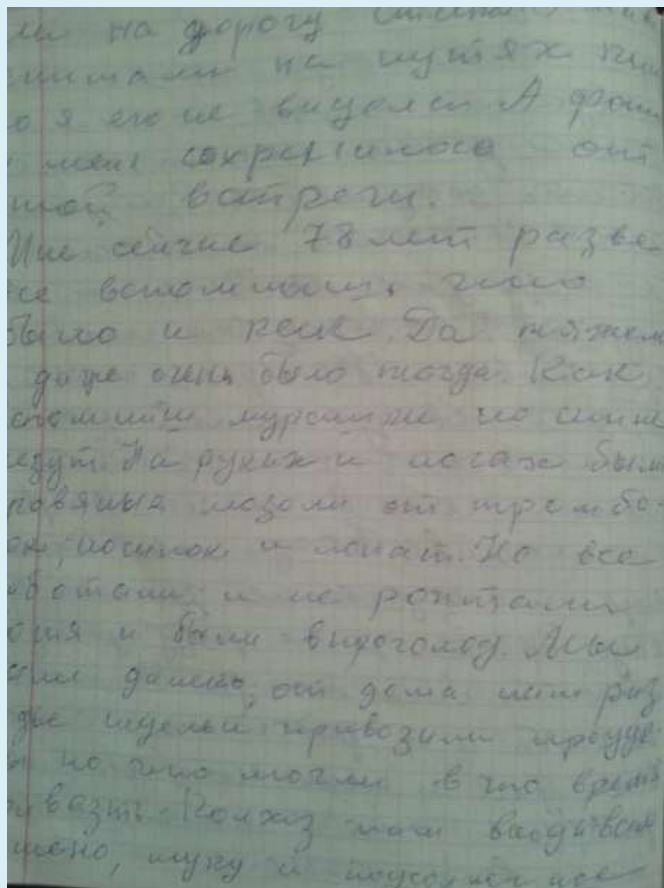 на дорогу
на путях
я его не виделся А фото
сохранилось от
встречи.
Мне сейчас 78 лет разве
все вспомнишь, что
было и как. Да тяжело
даже очень было тогда. Как
вспомнишь мурашки по спине
идут. На руках и ногах были
кровяные мозоли от трамбо-
вок, носилок и лопат. Но все
работали и не роптали
хотя и были впроголод. Мы
далеко от дома нам раз
две недели привозили продук
ты но что могли в то время
Колхоз нам выдавал
пшено, муку и подсолнечное